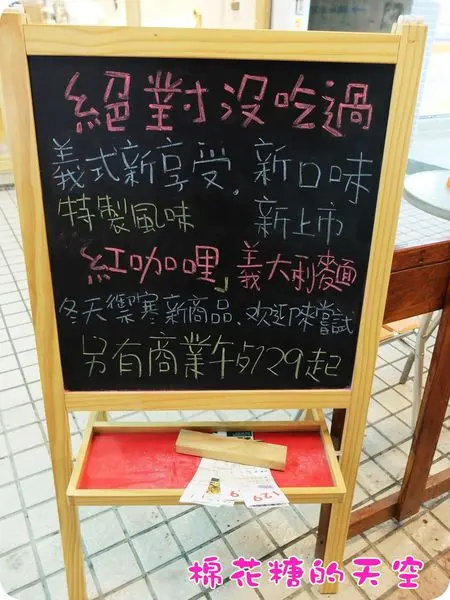 絕對沒吃過
義式新享受. 新口味
特製風味 新上市
紅咖哩」義大利麵
冬天禦寒新商品.欢迎來嘗試
另有商業午餐129起
129
棉花糖的天空